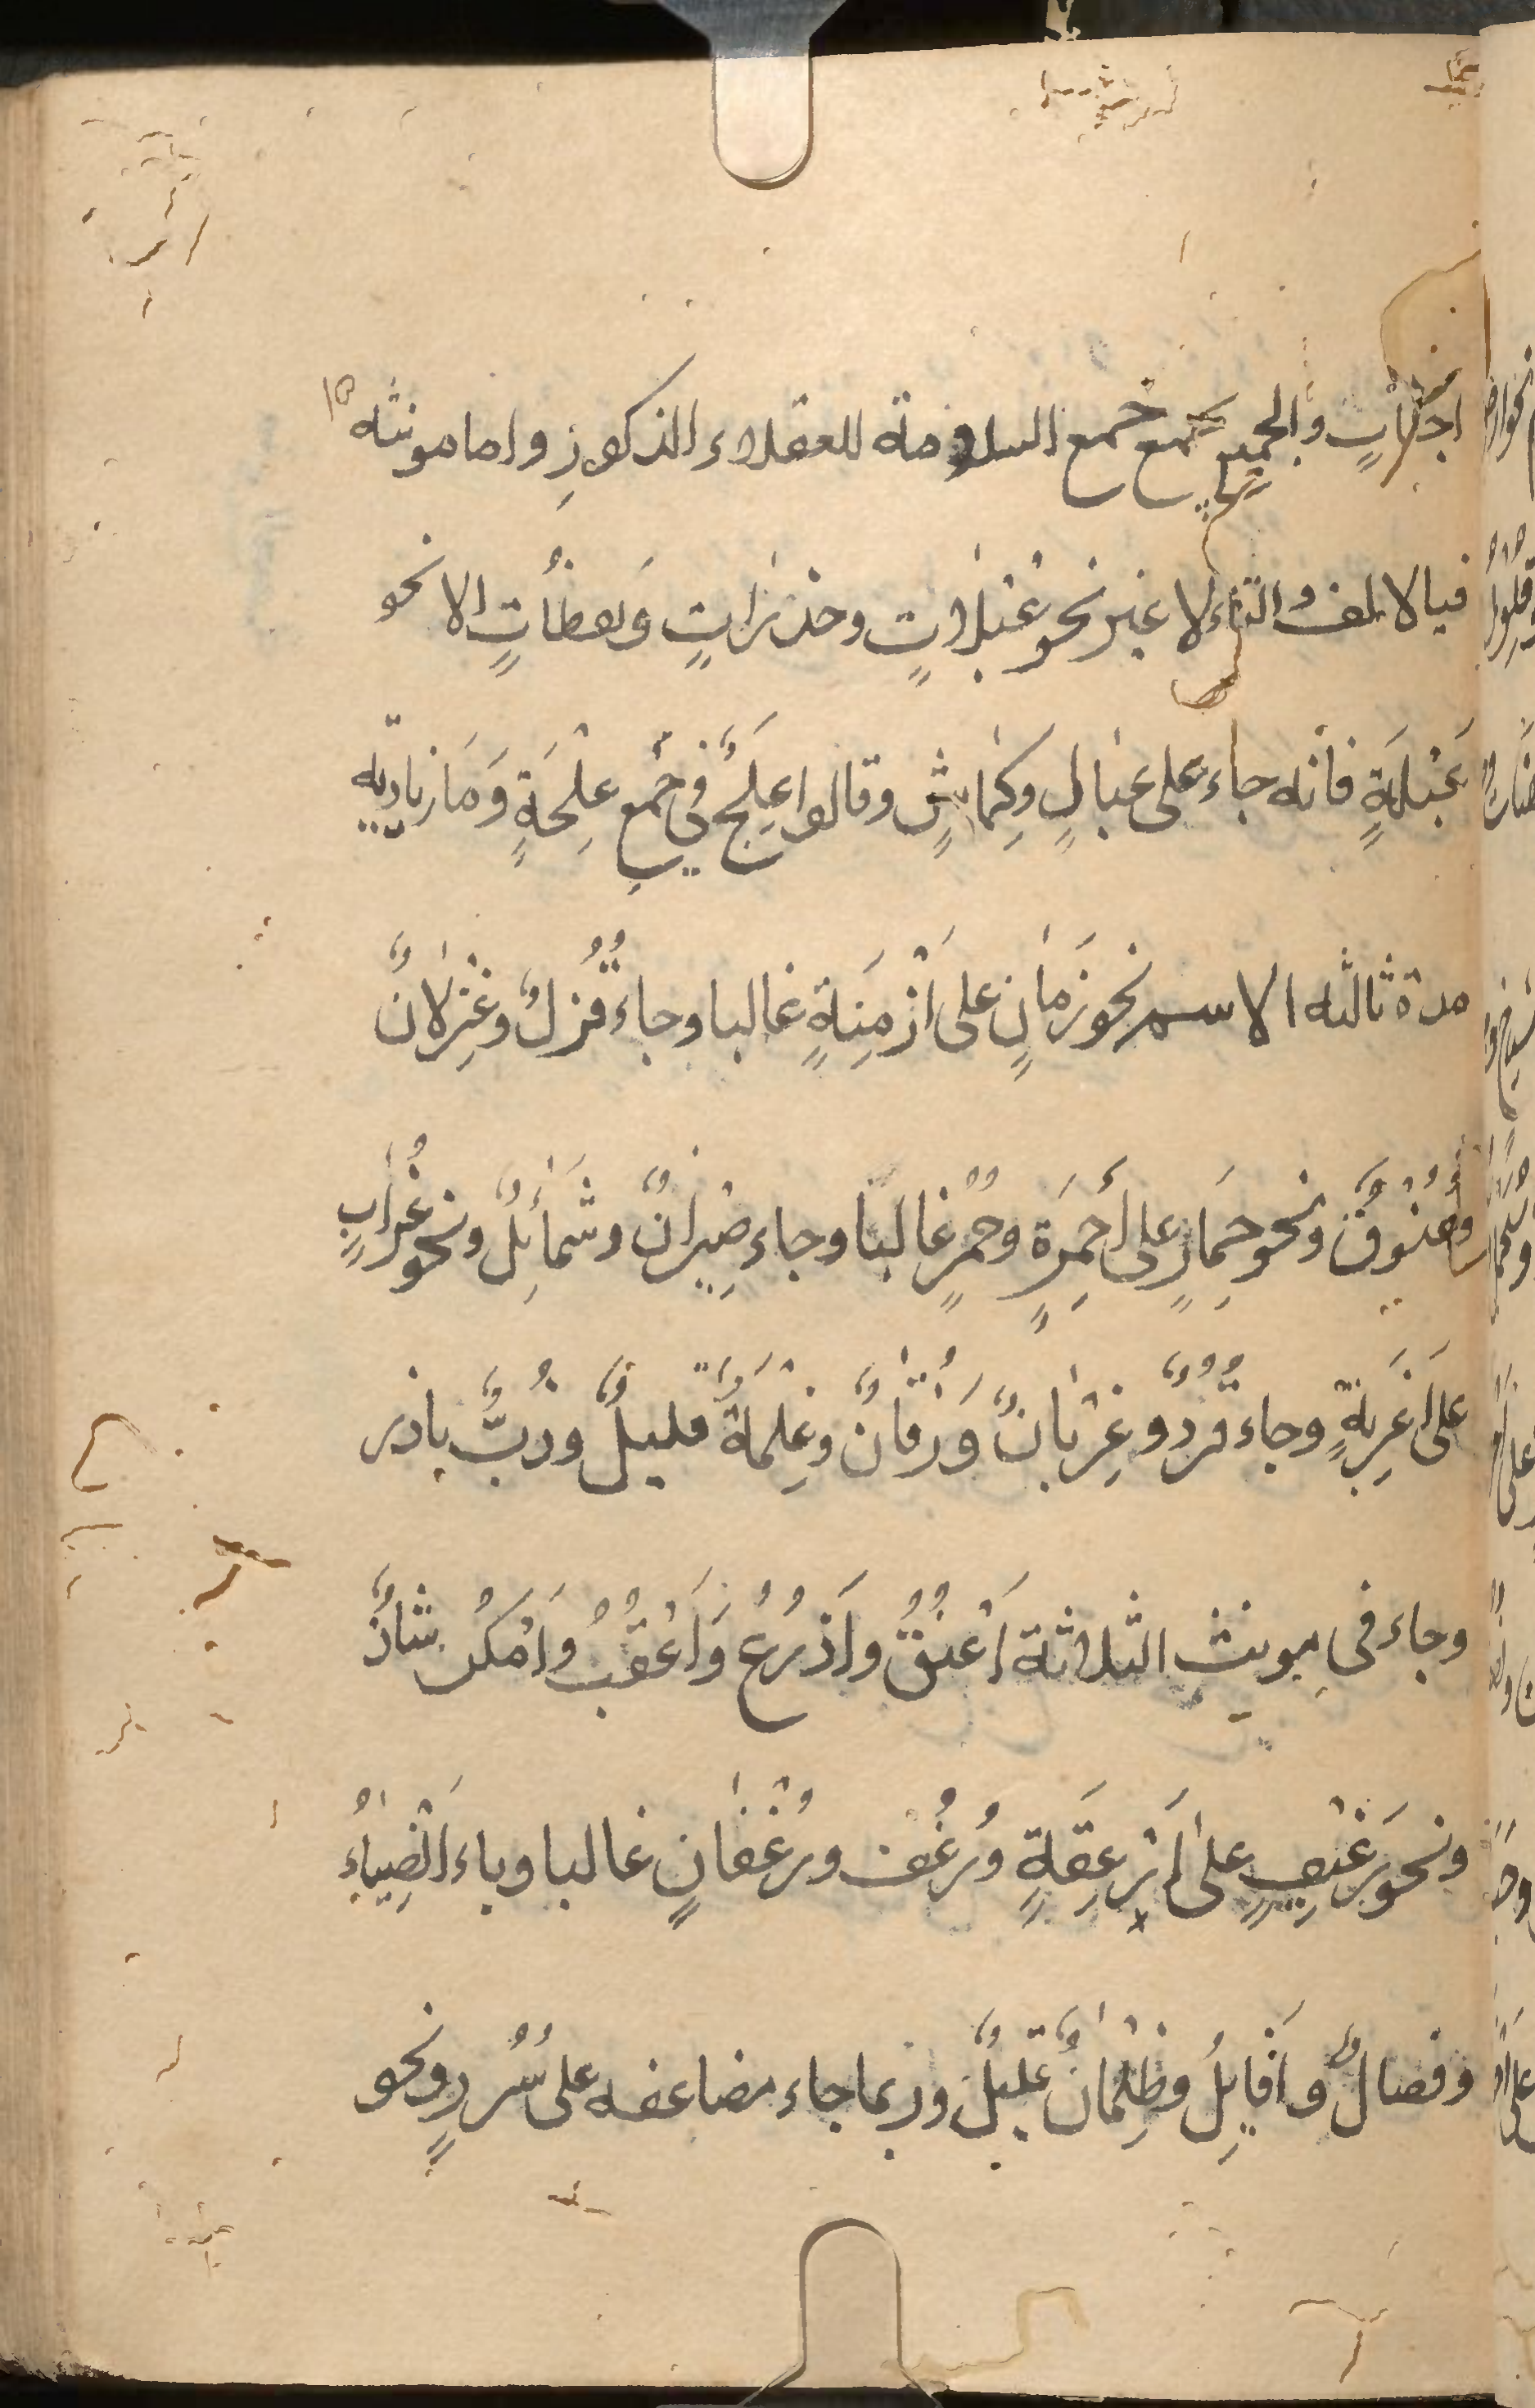 والجميع يجمع جمع السلامة للعقلاء الذكورِ واما مونثه
فبالالف والتاء لا غير نحو عَبْلاتٍ وحذراتٍ وَيقظُاتٍ الا نحو
عَبْلَةٍ فانه جاء على عبالٍ وكِمَاشٍ وقالوا عِلَجٌ في جَمعِ عِلْجَةٍ وَمَا زيادتِه
مدة ثالثه الاسم نحو زَمانٍ على اَزْمِنَةٍ غالبا وجاء قُزُلٌ وغِزْلانٌ
وعُنُوقٌ ونحو حِمَارٍ على أَحمِرَةٍ وحُمُرٍ غالبا وجاء صِيْرانٌ وشَمَائِلُ ونحو غُرَابٍ
على اَغرِبةٍ وجاء قُرُدٌ وغِرْبانٌ وَزُقّانٌ وغِلْمَةٌ قليلٌ وذُبٌّ نادر
وجاء في مونث الثلاثة اَعْنُقٌ واَذرُعٌ وَاَعْقُبٌ واَمْكُنٌ شاذٌّ
ونحو رَغيفٍ على اَرْغِفَةٍ ورُغُف ورُغْفانٍ غالبا وجاء اَنْصِباءُ
وفصالٌ واَفايِلُ وظِلْمانٌ قليلٌ وربما جاء مضاعفه على سُرُرٍ ونحو